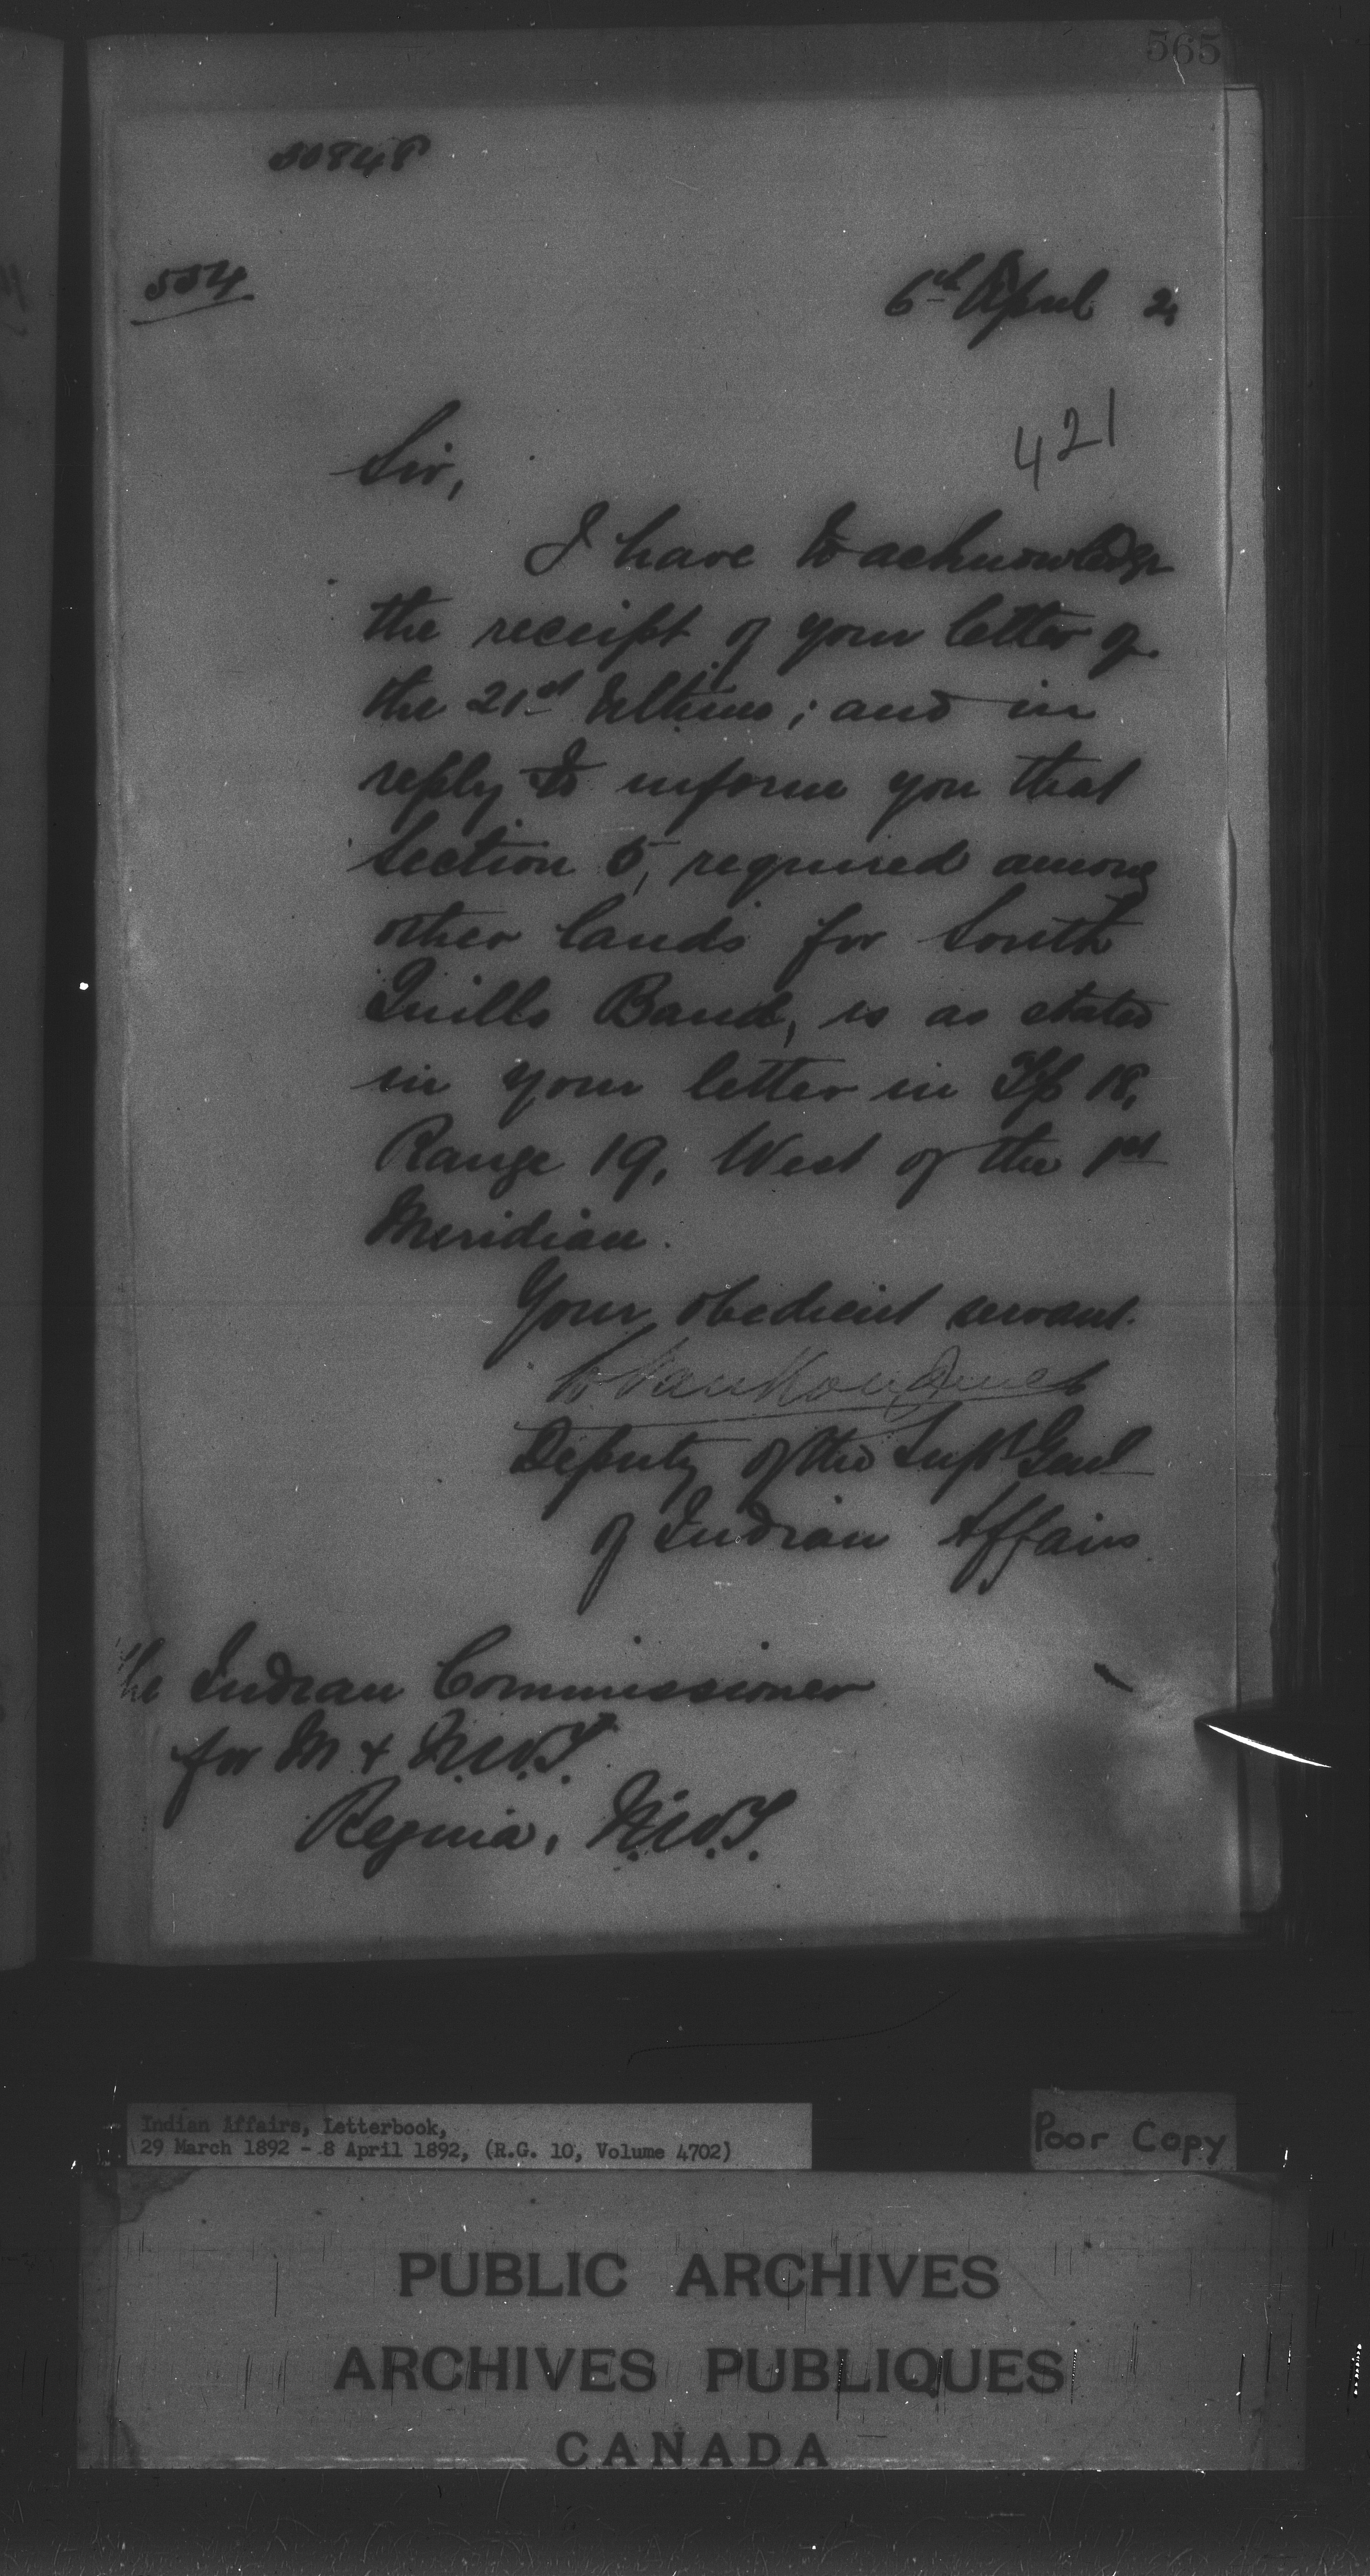 565
80848
554
6th April 2
421
Sir,
I have to acknowledge
the receipt of your letter of
the 21st Ultimo; and in
reply to inform you that
Section 5, required among
other lands for South
Quills Band, is as stated
in your letter in Tp 18,
Range 19, West of the 1st
Meridian.
Your obedient servant.
L VanKoughnet
Deputy of the Supt Genl
of Indian Affairs
The Indian Commissioner
for M & N.W.T.
Regina, N.W.T.
Indian Affairs, Letterbook,
29 March 1892 - 8 April 1892, (R.G. 10, Volume 4702)
Poor Copy
PUBLIC ARCHIVES
ARCHIVES PUBLIQUES
CANADA